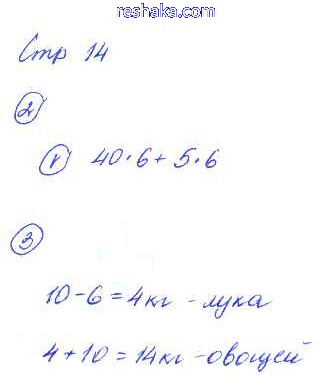 reshaka.com
Стр 14
2
1 40·6+5·6
3
10-6=4кг -лука
4+10=14кг -овощей